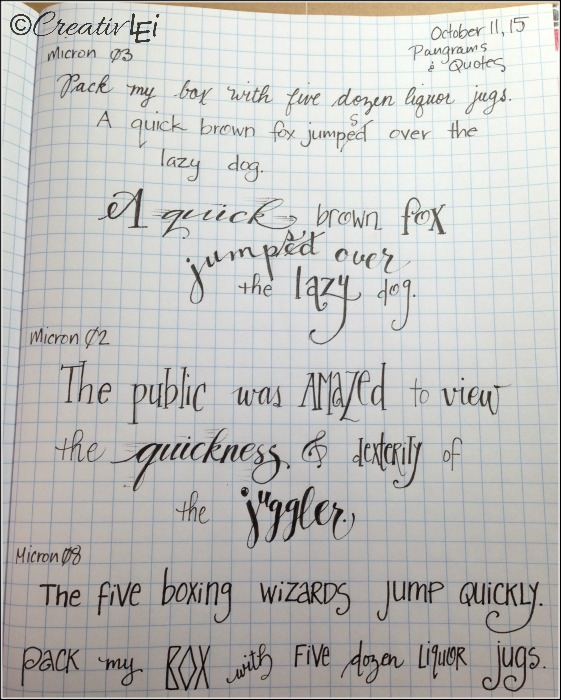 ©CreativLEi
October 11, 15
Micron 03
Pangrams
& Quotes
Pack my box with five dozen liquor jugs.
A quick brown fox jumpeds over the
lazy dog.
A quick brown fox
jumpeds over
the lazy dog.
Micron 02
The public was AMAZED to view
the quickness & dexterity of
the juggler.
Micron 08
The five boxing wizards jump quickly.
Pack my BOX with five dozen liquor jugs.